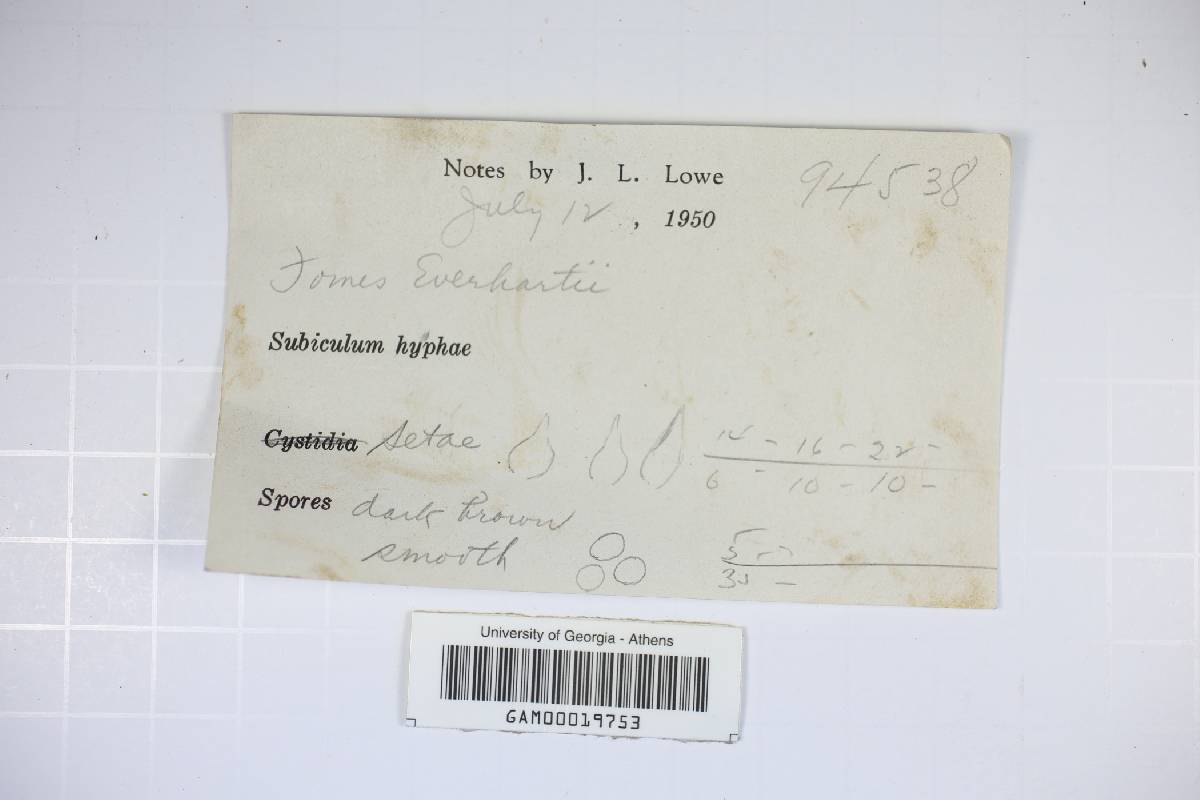 Notes by J. L. Lowe 94538
July 12, 1950
Fomes Everhartii
Subiculum hyphae
Cystidia setae 14 - 16 - 22 -
6 - 10 - 10 -
Spores dark brown
smooth
University of Georgia - Athens
GAM00019753